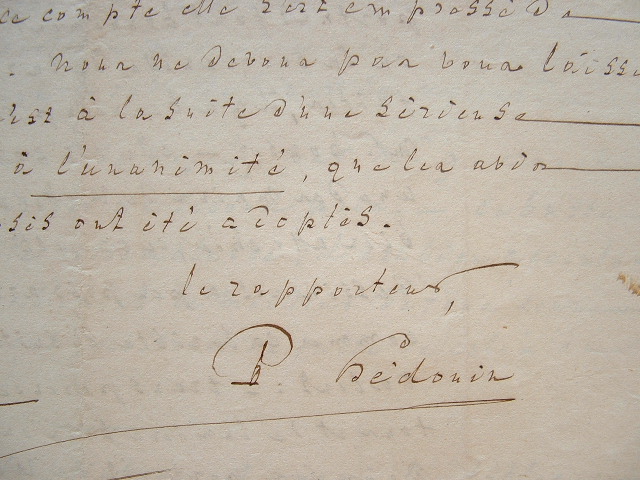 ce compte elle s'est empressé de
. nous ne devons pas vous laisse
c'est à la suite d'une sérieuse
à l'unanimité, que les avis
sis ont été adoptés.
le rapporteur,
P. Hédouin